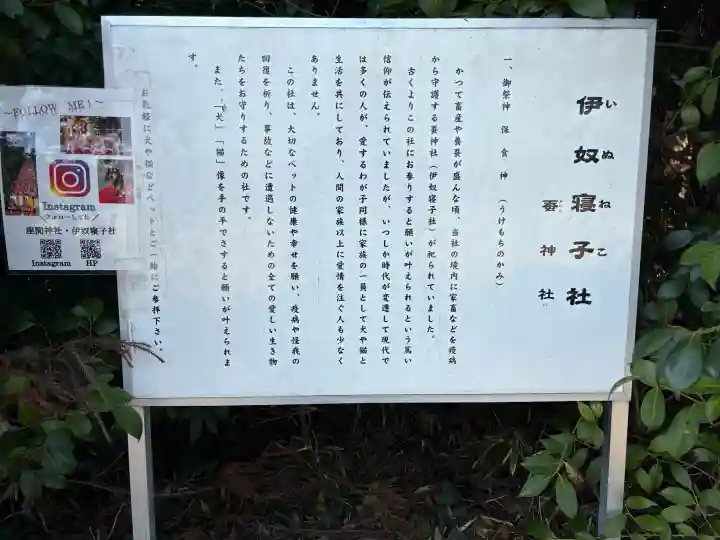 伊奴寝子社
いぬねこ
蚕神社
一、御祭神　保食神　（うけもちのかみ）
かつて畜産や養蚕が盛んな頃、当社の境内に家畜などを疫病
から守護する蚕神社（伊奴寝子社）が祀られていました。
古くよりこの社にお参りすると願いが叶えられるという篤い
信仰が伝えられていましたが、いつしか時代が変遷して現代で
は多くの人が、愛するわが子同様に家族の一員として犬や猫と
生活を共にしており、人間の家族以上に愛情を注ぐ人も少なく
ありません。
この社は、大切なペットの健康や幸せを願い、疫病や怪我の
回復を祈り、事故などに遭遇しないための全ての愛しい生き物
たちをお守りするための社です。
また、「犬」「猫」像を手の平でさすると願いが叶えられま
す。
お気軽に犬や猫などペットとご一緒にご参拝下さい。
～FOLLOW ME！～
Instagram
フォローしてね
座間神社・伊奴寝子社
Instagram
HP